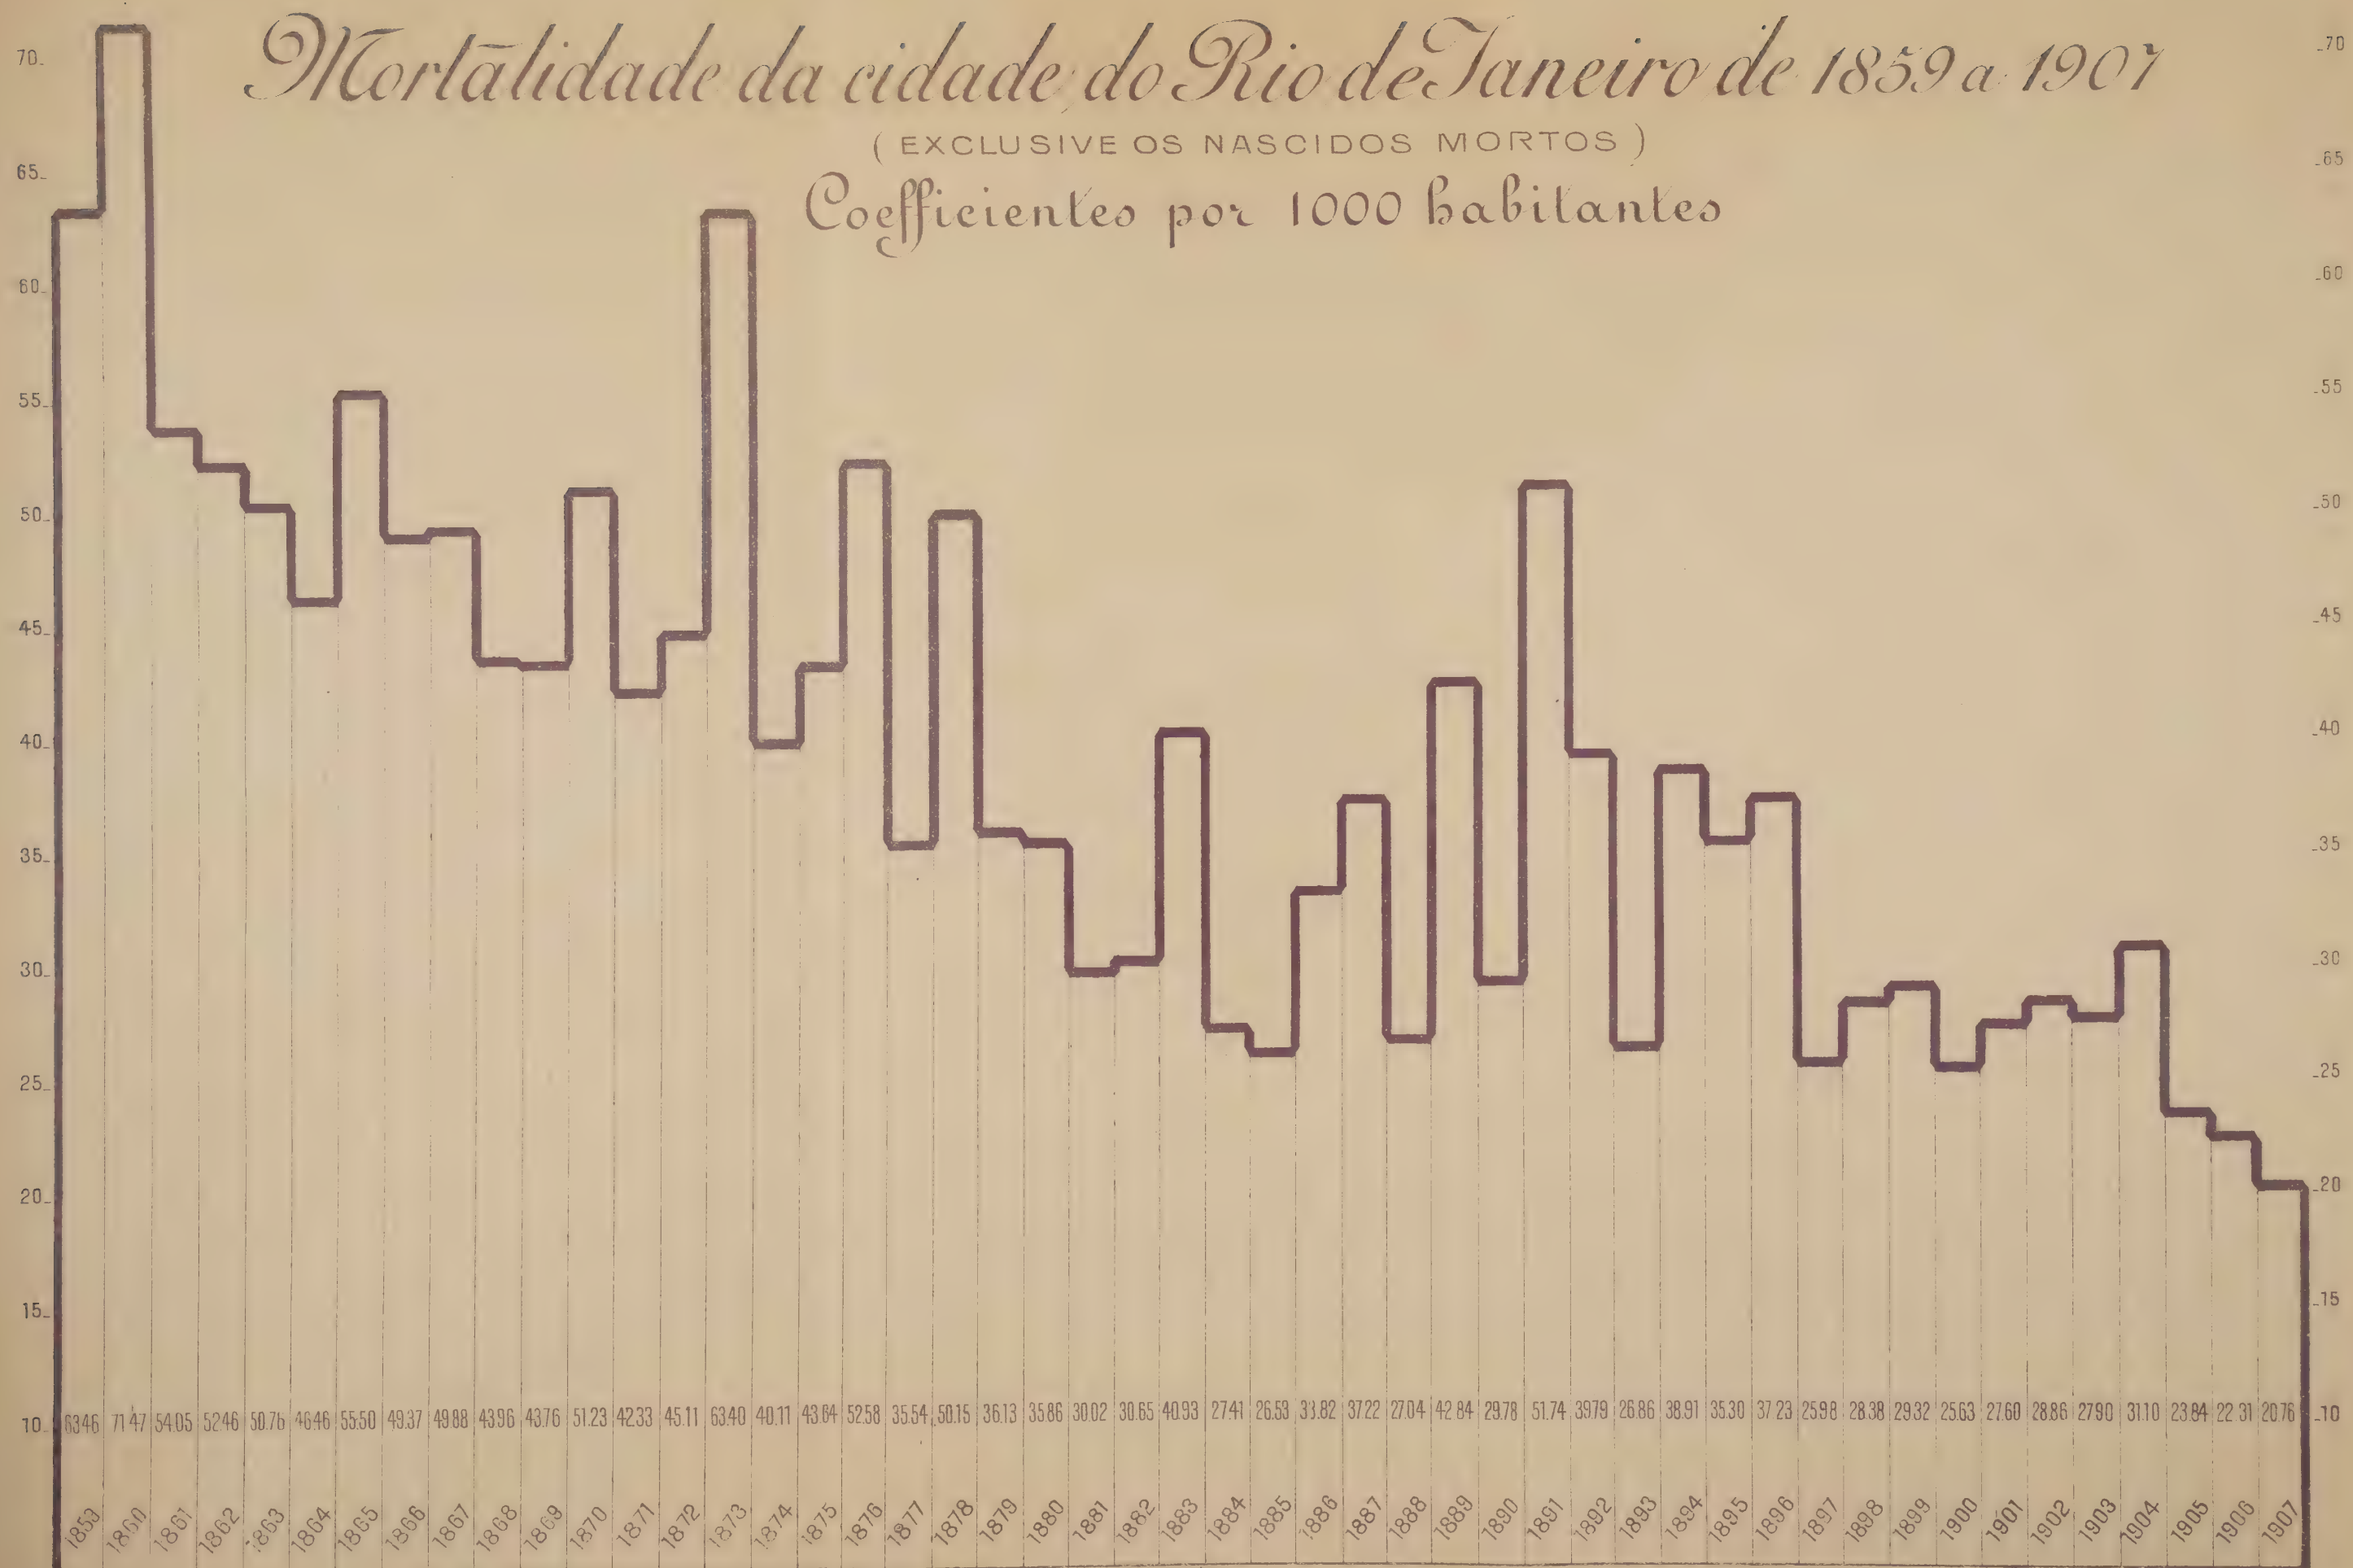 Mortalidade da cidade do Rio de Janeiro de 1859 a 1907
( EXCLUSIVE OS NASCIDOS MORTOS )
Coefficientes por 1000 habitantes
70 70
65 65
60 60
55 55
50 50
45 45
40 40
35 35
30 30
25 25
20 20
15 15
10 63.46 71.47 54.05 52.46 50.76 46.46 55.50 49.37 49.88 43.96 43.76 51.23 42.33 45.11 63.40 40.11 43.64 52.58 35.54 50.15 36.13 35.86 30.02 30.65 40.93 27.41 26.53 33.82 37.22 27.04 42.84 29.78 51.74 39.79 26.86 38.91 35.30 37.23 25.98 28.38 29.32 25.63 27.60 28.86 27.90 31.10 23.84 22.31 20.76 10
1859 1860 1861 1862 1863 1864 1865 1866 1867 1868 1869 1870 1871 1872 1873 1874 1875 1876 1877 1878 1879 1880 1881 1882 1883 1884 1885 1886 1887 1888 1889 1890 1891 1892 1893 1894 1895 1896 1897 1898 1899 1900 1901 1902 1903 1904 1905 1906 1907